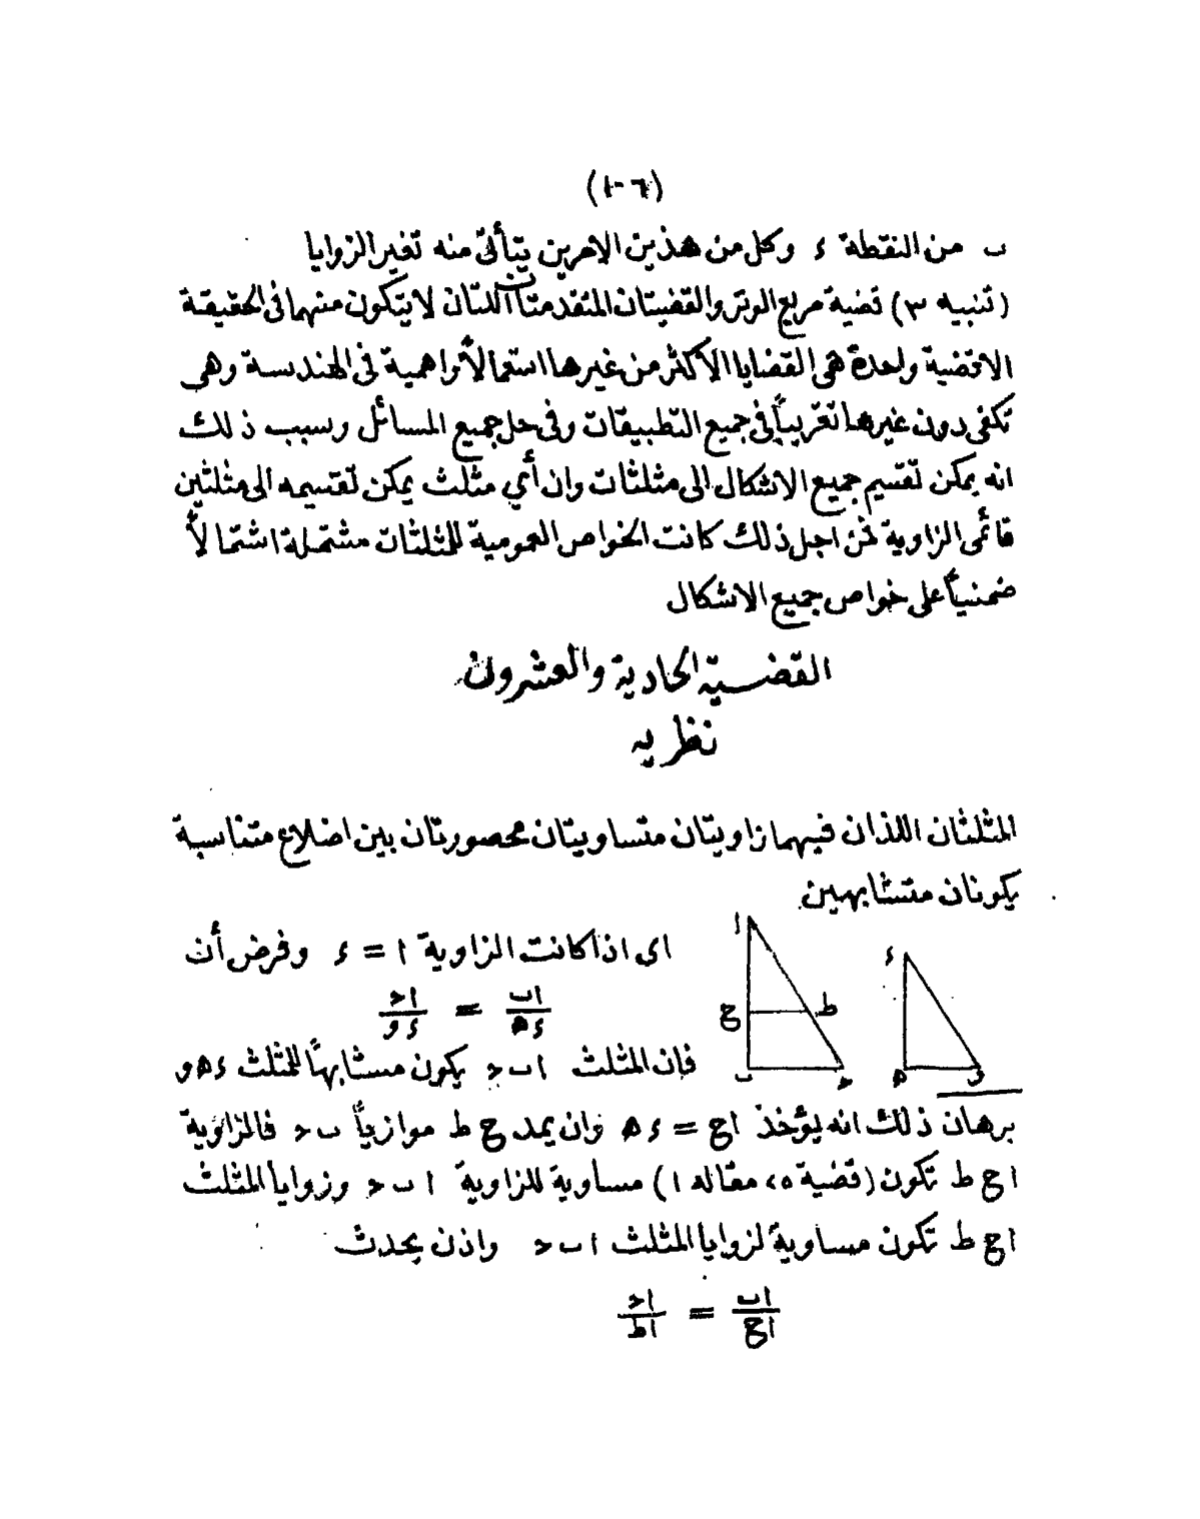 (١٠٦)
ب من النقطة ء وكل من هذين الامرين يتأتى منه تغير الزوايا
(تنبيه ٣) قضية مربع الوتر والقضيتان المتقدمتان اللتان لا يتكون منهما فى الحقيقة
الا قضية واحدة هى القضايا الأكثر من غيرها استعمالاً واهمية فى الهندسة وهى
تكفى دون غيرها تقريباً فى جميع التطبيقات وفى حل جميع المسائل وسبب ذلك
انه يمكن تقسيم جميع الاشكال الى مثلثات وان أي مثلث يمكن تقسيمه الى مثلثين
قائمى الزاوية فمن اجل ذلك كانت الخواص العمومية للمثلثات مشتملة اشتمالاً
ضمنياً على خواص جميع الاشكال
القضية الحادية والعشرون
نظريه
المثلثان اللذان فيهما زاويتان متساويتان محصورتان بين اضلاع متناسبة
يكونان متشابهين
اى اذا كانت الزاوية ا = ء وفرض أن
اب/ءه = اح/ءو
فان المثلث اب ح يكون مشابهاً للمثلث ءه و
ا
ج
ط
ب
ح
ء
ه
و
برهان ذلك انه يؤخذ اج = ءه وان يمد ج ط موازياً ب ح فالزاوية
اج ط تكون (قضية ٥، مقاله ١) مساوية للزاوية ا ب ح وزوايا المثلث
اج ط تكون مساوية لزوايا المثلث ا ب ح واذن يحدث
اب/اج = اح/اط